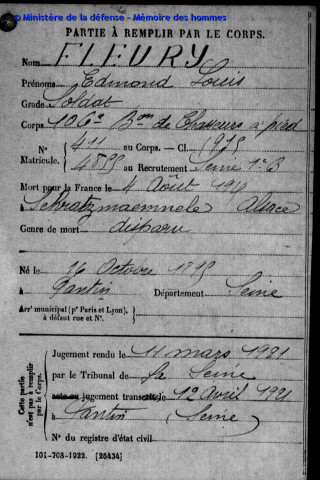 © Ministère de la défense - Mémoire des hommes
PARTIE À REMPLIR PAR LE CORPS.
Nom FLEURY
Prénoms Edmond Louis
Grade Soldat
Corps 106e Bon de Chasseurs à pied
N° 411 au Corps. — Cl. 1915
Matricule. 4899 au Recrutement Seine 1er B
Mort pour la France le 4 Août 191
à Schratzmaennele Alsace
Genre de mort disparu
Né le 16 Octobre 1895
à Pantin Département Seine
Arrt municipal (pr Paris et Lyon), à défaut rue et N°.
Cette partie n'est pas à remplir par le Corps.
Jugement rendu le 11 mars 1921
par le Tribunal de la Seine
acte ou jugement transcrit le 12 Avril 1921
à Pantin (Seine)
N° du registre d'état civil
101-708-1922. [26434]